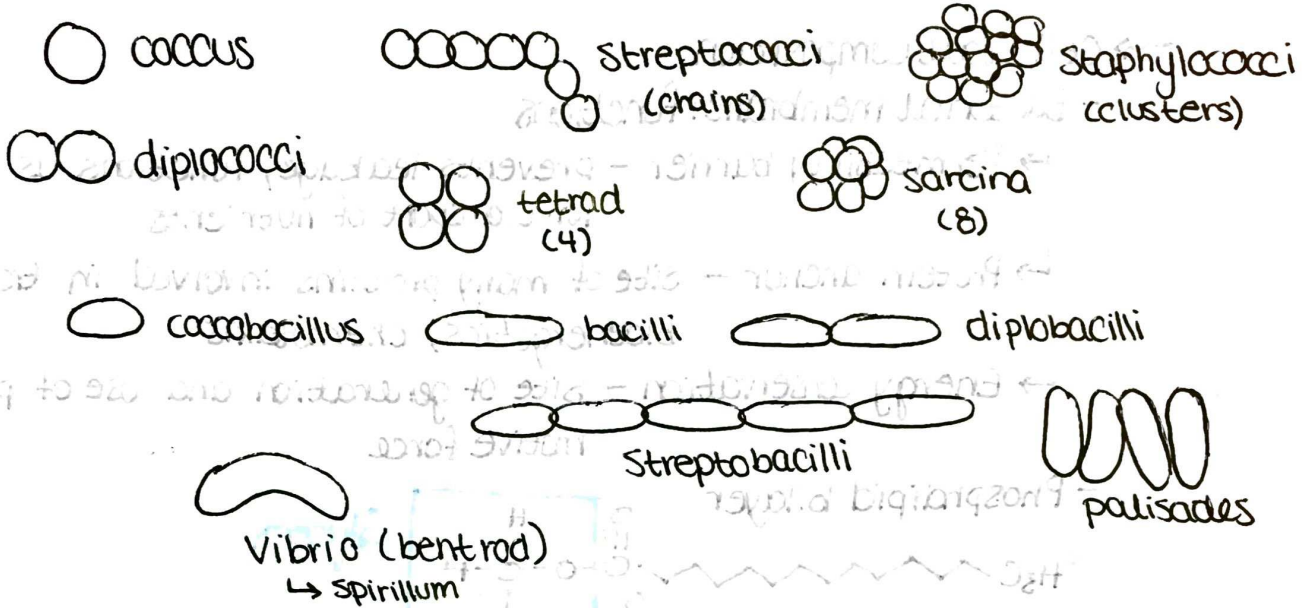 coccus
streptococci
(chains)
staphylococci
(clusters)
diplococci
tetrad
(4)
sarcina
(8)
coccobacillus
bacilli
diplobacilli
streptobacilli
palisades
Vibrio (bent rod)
↳ spirillum